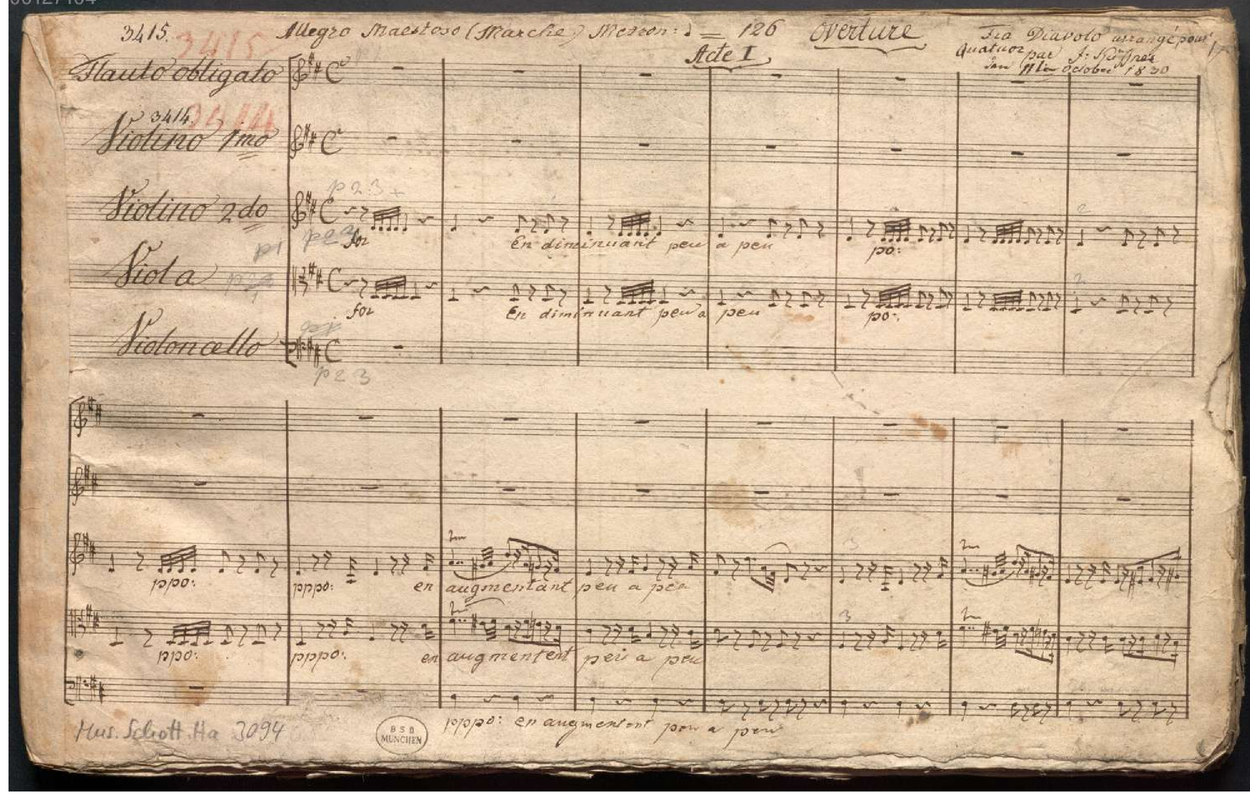 3415. 3415 Allegro Maestoso (Marche) = 126 Overture Fra Diavolo arrangé pour
Acte I Quatuor par J: Küffner
October 1830
Flauto obligato
3414. 3414
Violino 1mo
p 2 3
Violino 2do
for En diminuant peu a peu po:
p1
Viola
for En diminuant peu a peu po:
Violoncello
p 2 3
ppo: pppo: en augmentant peu a peu
ppo: pppo: en augmentent peu a peu
pppo: en augmentent peu a peu
Mus. Schott. Ha 3094
BSB
MÜNCHEN